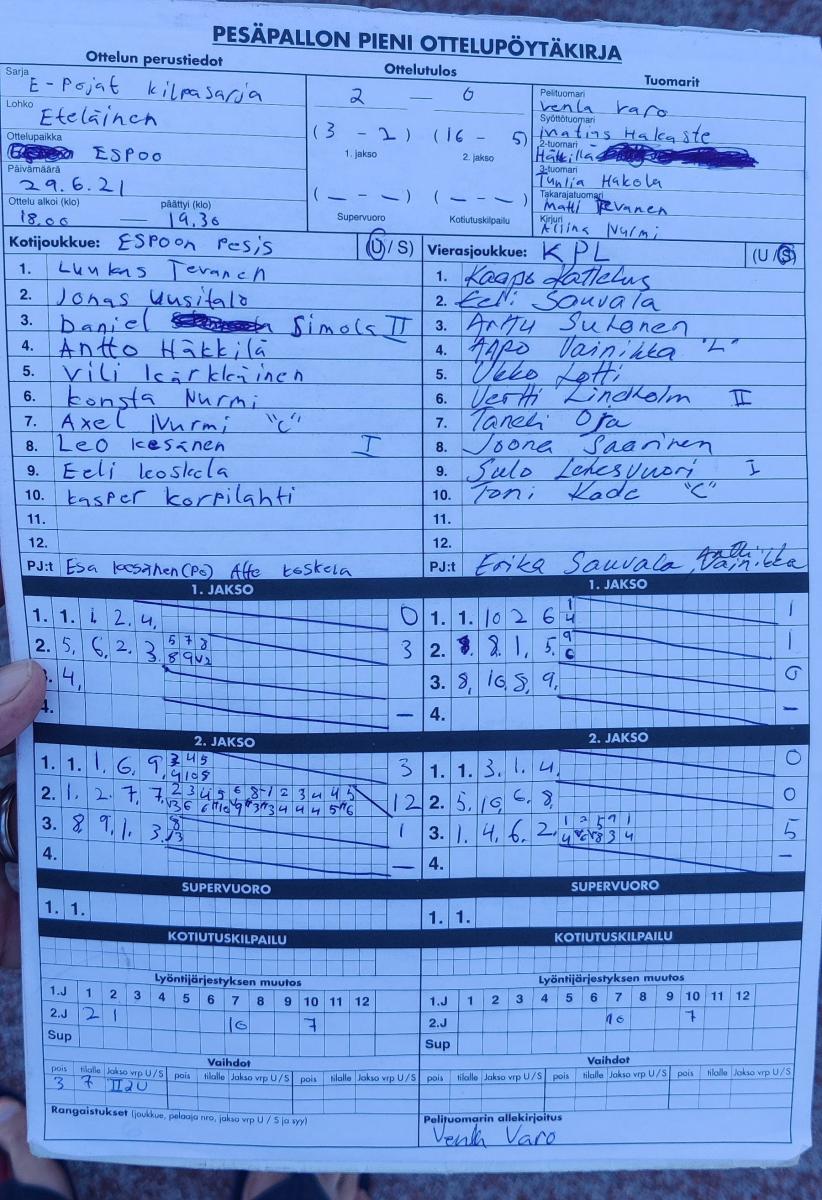 PESÄPALLON PIENI OTTELUPÖYTÄKIRJA
Ottelun perustiedot
Sarja
E-Pojat kilpasarja
Lohko
Eteläinen
Ottelupaikka
ESPOO
Päivämäärä
29.6.21
Ottelu alkoi (klo) päättyi (klo)
18.00 — 19.30
Ottelutulos
2 — 0
(3 - 2) (16 - 5)
1. jakso 2. jakso
( - - - ) ( - - - )
Supervuoro Kotiutuskilpailu
Tuomarit
Pelituomari
Venla Varo
Syöttötuomari
Matias Hakaste
2-tuomari
Häkkilä
3-tuomari
Tuulia Hakola
Takarajatuomari
Matti Tevanen
Kirjuri
Niina Nurmi
Kotijoukkue: ESPOON PESIS (U/S)
1. Luukas Tevanen
2. Jonas Uusitalo
3. Daniel Simola II
4. Antto Häkkilä
5. Vili Kärkkäinen
6. Konsta Nurmi
7. Axel Nurmi "C"
8. Leo Kesänen I
9. Eeli Koskela
10. Kasper Korpilahti
11.
12.
PJ:t Esa Kesänen (PG) Atte Koskela
Vierasjoukkue: KPL (U/S)
1. Kaapo Kattelus
2. Eeli Sauvala
3. Arttu Suhonen
4. Aapo Vainikka "L"
5. Ukko Lotti
6. Vertti Lindholm II
7. Taneli Oja
8. Joona Saarinen
9. Sulo Lehesvuori I
10. Toni Kade "C"
11.
12.
PJ:t Erika Sauvala, Antti Vainikka
1. JAKSO
1. 1. 1. 2. 4. 0
2. 5, 6, 2, 3, 3
3. 4,
4. —
2. JAKSO
1. 1. 1, 6, 9, 3
2. 1. 2. 7, 7, 12
3. 8, 9, 1, 3. 1
4. —
SUPERVUORO
1. 1.
KOTIUTUSKILPAILU
1. JAKSO
1. 1. 10 2 6 1
2. 8. 1, 5. 1
3. 8, 10, 8, 9, 0
4. —
2. JAKSO
1. 1. 3. 1. 4. 0
2. 5, 10, 6, 8, 0
3. 1. 4, 6, 2, 5
4. —
SUPERVUORO
1. 1.
KOTIUTUSKILPAILU
Lyöntijärjestyksen muutos
1.J 1 2 3 4 5 6 7 8 9 10 11 12
2.J 2 1 10 7
Sup
Vaihdot
pois tilalle Jakso vrp U/S pois tilalle Jakso vrp U/S pois tilalle Jakso vrp U/S
3 7 II2U
Rangaistukset (joukkue, pelaaja nro, jakso vrp U / S ja syy)
Lyöntijärjestyksen muutos
1.J 1 2 3 4 5 6 7 8 9 10 11 12
2.J 10 7
Sup
Vaihdot
pois tilalle Jakso vrp U/S pois tilalle Jakso vrp U/S pois tilalle Jakso vrp U/S
Pelituomarin allekirjoitus
Venla Varo